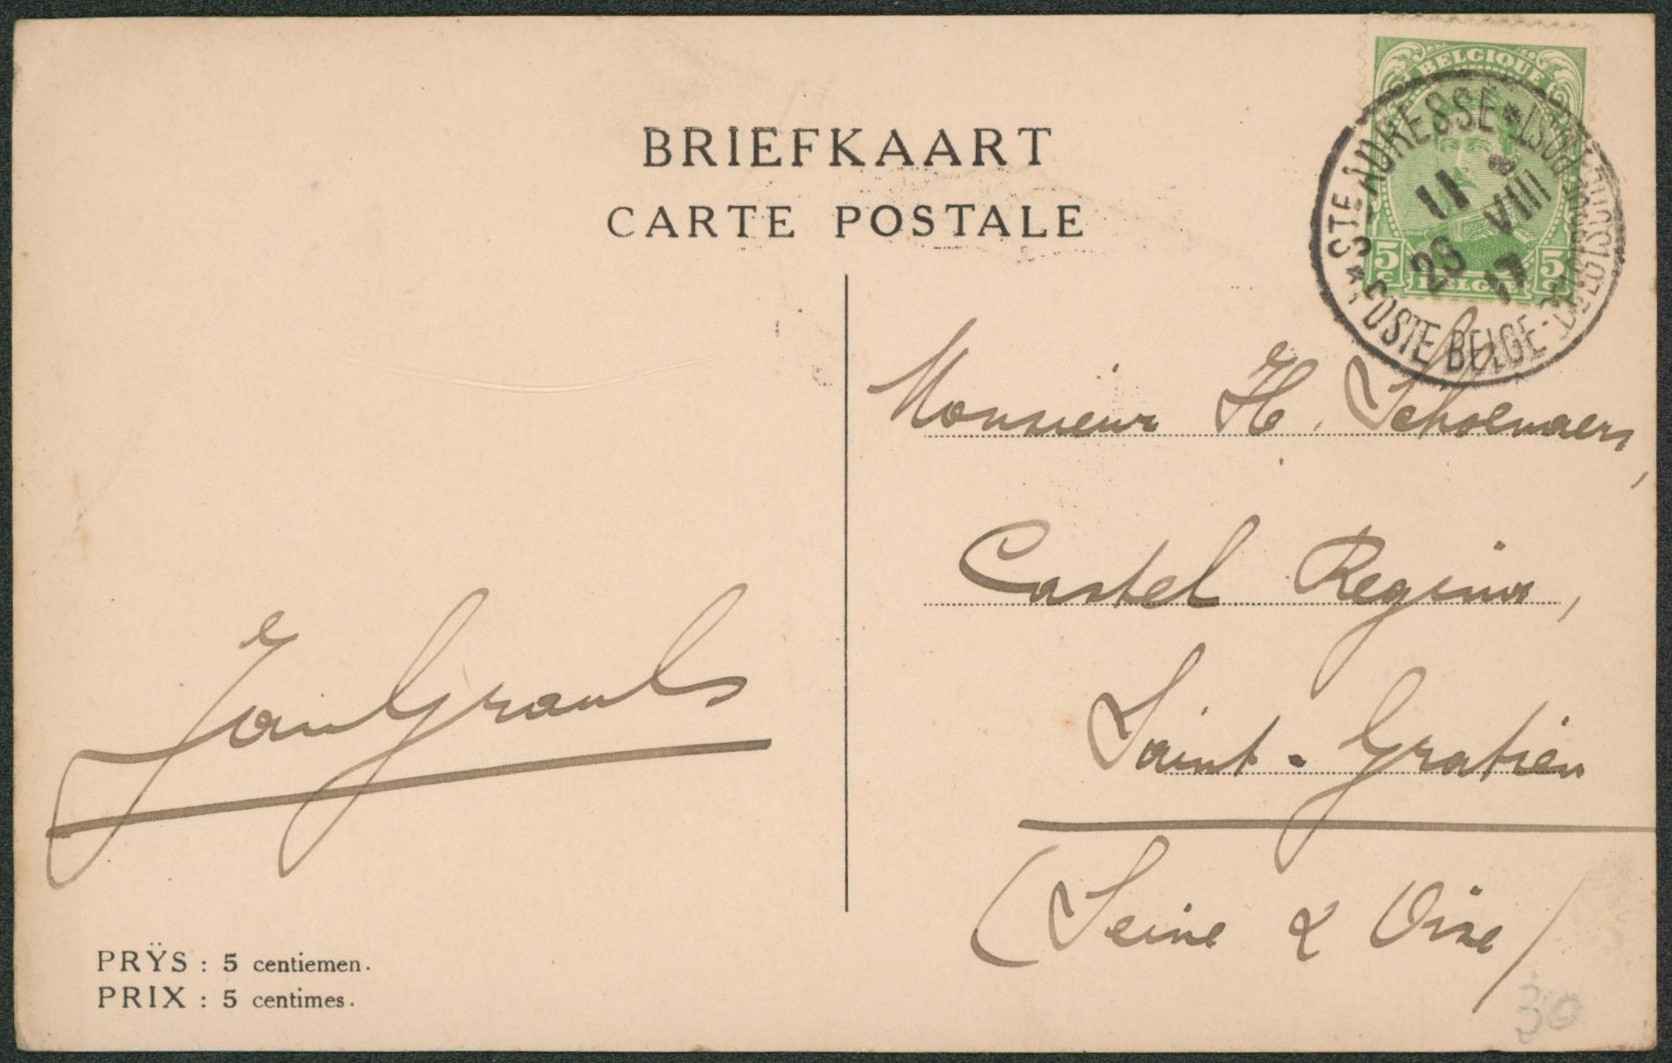 BRIEFKAART
CARTE POSTALE
BELGIQUE
5 c 5 c
BELGIE
* STE ADRESSE *
POSTE BELGE-BELGISCHE POST
11
23 VIII
17
Monsieur H. Schoenaers,
Castel Regina,
Saint-Gratien
(Seine & Oise)
Jan Grauls
PRŸS : 5 centiemen.
PRIX : 5 centimes.
30